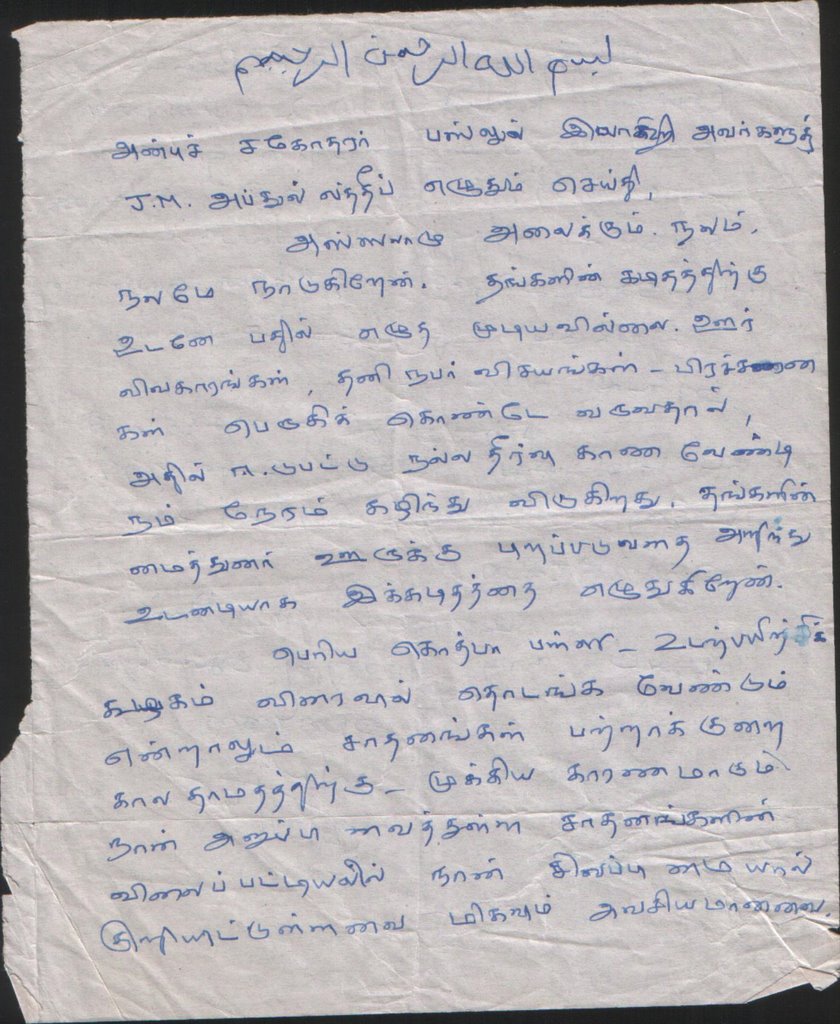 அன்புச் சகோதரர் பஸ்லுல் இலாஹி அவர்களுக்
J.M. அப்துல் லத்தீப் எழுதும் செய்தி,
அஸ்ஸலாமு அலைக்கும். நலம்,
நலமே நாடுகிறேன். தங்களின் கடிதத்திற்கு
உடனே பதில் எழுத முடியவில்லை. ஊர்
விவகாரங்கள், தனி நபர் விசயங்கள் - பிரச்சனை
கள் பெருகிக் கொண்டே வருவதால்,
அதில் ஈடுபட்டு நல்ல தீர்வு காண வேண்டி
நம் நேரம் கழிந்து விடுகிறது. தங்களின்
மைத்துனர் ஊருக்கு புறப்படுவதை அறிந்து
உடனடியாக இக்கடிதத்தை எழுதுகிறேன்.
பெரிய கொத்பா பள்ளி - உடற்பயிற்சிக்
கழகம் விரைவில் தொடங்க வேண்டும்
என்றாலும் சாதனங்கள் பற்றாக்குறை
கால தாமதத்திற்கு - முக்கிய காரணமாகும்.
நான் அனுப்பி வைத்துள்ள சாதனங்களின்
விலைப்பட்டியலில் நான் சிவப்பு மையால்
குறியிட்டுள்ளவை மிகவும் அவசியமானவை